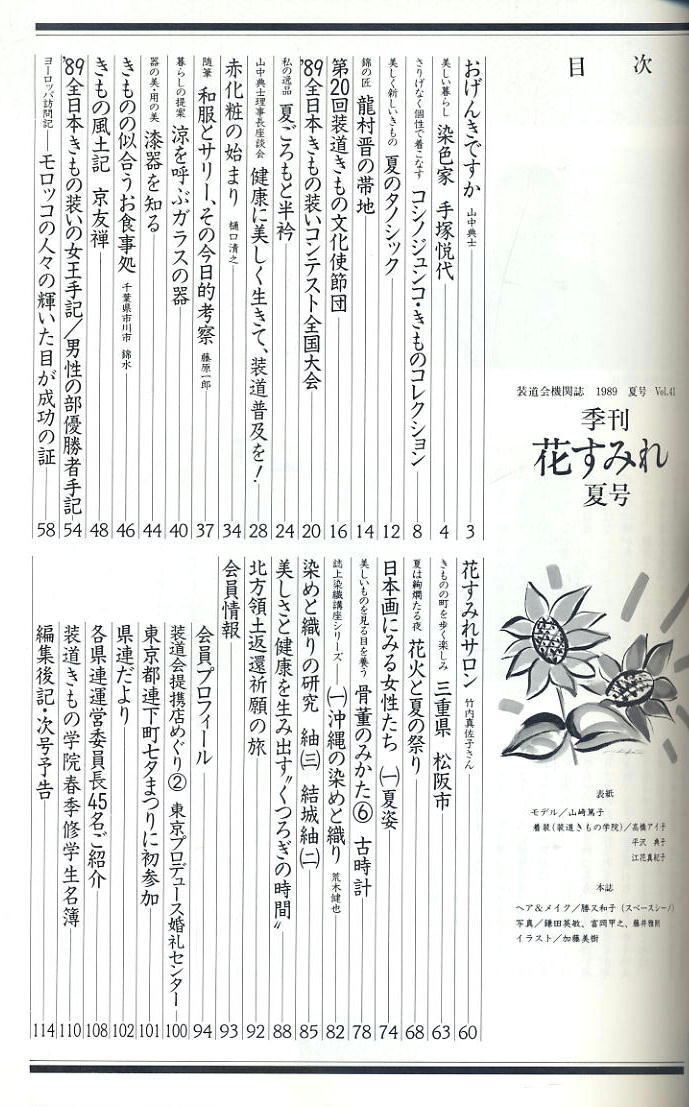 目次
装道会機関誌 1989 夏号 Vol.41
季刊
花すみれ
夏号
表紙
モデル／山崎篤子
着装（装道きもの学院）／高橋アイ子
平沢 典子
江花真紀子
本誌
ヘア＆メイク／勝又和子（スペースシーノ）
写真／鎌田英敏、富岡甲之、藤井雅則
イラスト／加藤美樹
おげんきですか 山中典士 3
美しい暮らし 染色家 手塚悦代 4
さりげなく個性で着こなす コシノジュンコ・きものコレクション 8
美しく新しいきもの 夏のタノシック 12
錦の匠 龍村晋の帯地 14
第20回装道きもの文化使節団 16
'89全日本きもの装いコンテスト全国大会 20
私の逸品 夏ごろもと半衿 24
山中典士理事長座談会 健康に美しく生きて、装道普及を！ 28
赤化粧の始まり 樋口清之 34
随筆 和服とサリー、その今日的考察 藤原一郎 37
暮らしの提案 涼を呼ぶガラスの器 40
器の美・用の美 漆器を知る 44
きものの似合うお食事処 千葉県市川市 錦水 46
きもの風土記 京友禅 48
'89全日本きもの装いの女王手記／男性の部優勝者手記 54
ヨーロッパ訪問記 モロッコの人々の輝いた目が成功の証 58
花すみれサロン 竹内真佐子さん 60
きものの町を歩く楽しみ 三重県 松阪市 63
夏は絢爛たる夜 花火と夏の祭り 68
日本画にみる女性たち （一）夏姿 74
美しいものを見る目を養う 骨董のみかた⑥ 古時計 78
誌上染織講座シリーズ （一）沖縄の染めと織り 荒木健也 82
染めと織りの研究 紬（三） 結城紬（二） 85
美しさと健康を生み出す〝くつろぎの時間〟 88
北方領土返還祈願の旅 92
会員情報 93
会員プロフィール 94
装道会提携店めぐり② 東京プロデュース婚礼センター 100
東京都連下町七夕まつりに初参加 101
県連だより 102
各県連運営委員長45名ご紹介 108
装道きもの学院春季修学生名簿 110
編集後記・次号予告 114